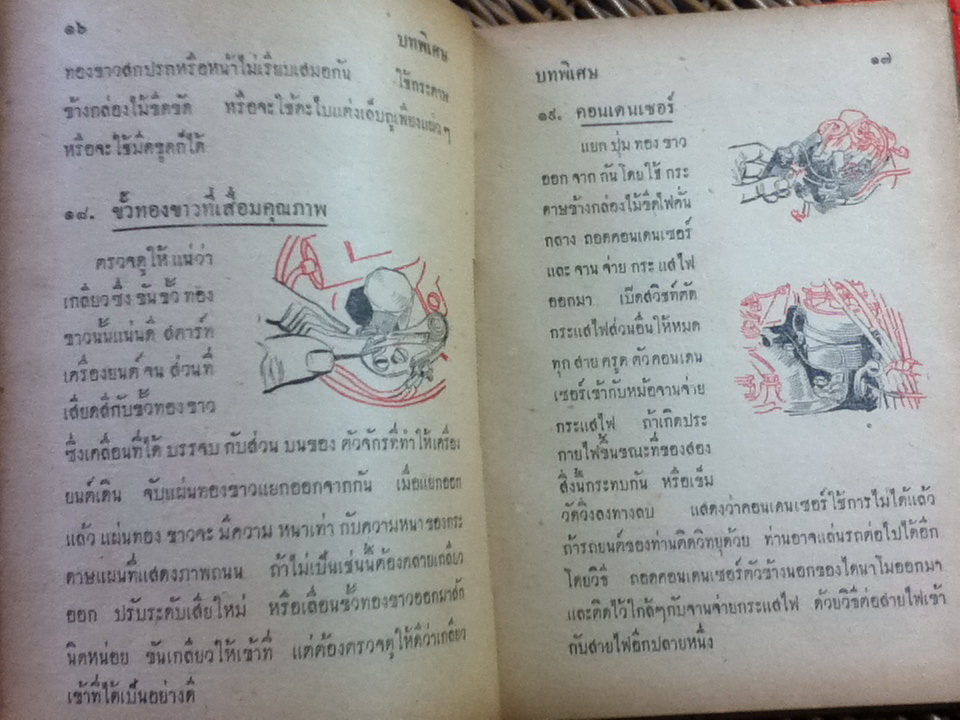 ๑๖
บทพิเศษ
ทองขาวสกปรกหรือหน้าไม่เรียบเสมอกัน ใช้กระดาษ
ข้างกล่องไม้ขีดขัด หรือจะใช้ตะไบแต่งเล็บถูเพียงแผ่วๆ
หรือจะใช้มีดขูดก็ได้
๑๘. ขั้วทองขาวที่เสื่อมคุณภาพ
ตรวจดูให้แน่ว่า
เกลียวซึ่งขันขั้วทอง
ขาวนั้นแน่นดี สตาร์ท
เครื่องยนต์จนส่วนที่
เสียดสีกับขั้วทองขาว
ซึ่งเคลื่อนที่ได้บรรจบกับส่วนบนของตัวจักรที่ทำให้เครื่อง
ยนต์เดิน จับแผ่นทองขาวแยกออกจากกัน เมื่อแยกออก
แล้วแผ่นทองขาวจะมีความหนาเท่ากับความหนาของกระ
ดาษแผ่นที่แสดงภาพถนน ถ้าไม่เป็นเช่นนั้นต้องคลายเกลียว
ออก ปรับระดับเสียใหม่ หรือเลื่อนขั้วทองขาวออกมาสัก
นิดหน่อย ขันเกลียวให้เข้าที่ แต่ต้องตรวจดูให้ดีว่าเกลียว
เข้าที่ได้เป็นอย่างดี
บทพิเศษ
๑๗
๑๙. คอนเดนเซอร์
แยกปุ่มทองขาว
ออกจากกันโดยใช้กระ
ดาษข้างกล่องไม้ขีดไฟคั่น
กลาง ถอดคอนเดนเซอร์
และจานจ่ายกระแสไฟ
ออกมา เปิดสวิชท์ตัด
กระแสไฟส่วนอื่นให้หมด
ทุกสาย ครูดตัวคอนเดน
เซอร์เข้ากับหม้อจานจ่าย
กระแสไฟ ถ้าเกิดประ
กายไฟขึ้นขณะที่ของสอง
สิ่งนี้กระทบกัน หรือเข็ม
วัดวิ่งลงทางลบ แสดงว่าคอนเดนเซอร์ใช้การไม่ได้แล้ว
ถ้ารถยนต์ของท่านติดวิทยุด้วย ท่านอาจแล่นรถต่อไปได้อีก
โดยวิธี ถอดคอนเดนเซอร์ตัวข้างนอกของไดนาโมออกมา
และติดไว้ใกล้ๆกับจานจ่ายกระแสไฟ ด้วยวิธีต่อสายไฟเข้า
กับสายไฟอีกปลายหนึ่ง